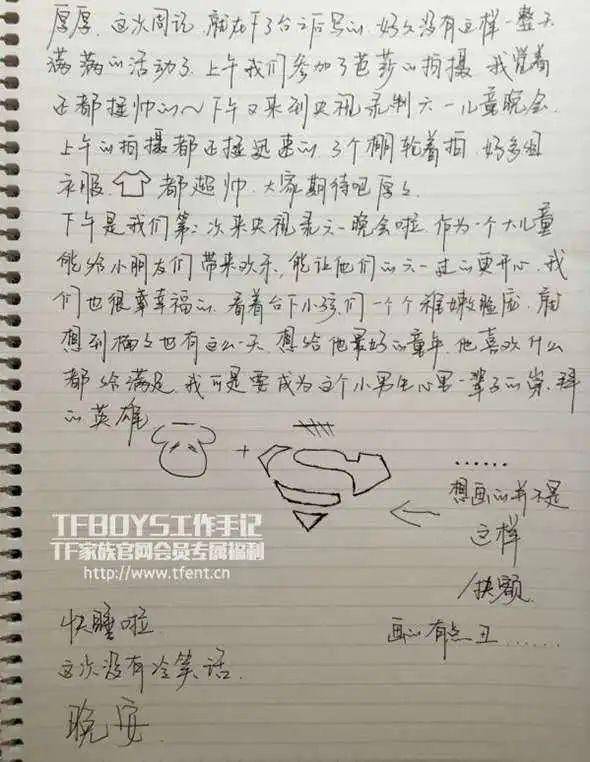 厚厚.这次周记.就在下了台之后写的.好久没有这样一整天
满满的活动了.上午我们参加了芭莎的拍摄.我觉着
还都挺帅的~下午又来到央视录制六一儿童晚会.
上午的拍摄都还挺迅速的.3个棚轮着拍.好多组
衣服. 都超帅.大家期待吧厚厚.
下午是我们第二次来央视录六一晚会啦.作为一个大儿童
能给小朋友们带来欢乐,能让他们的六一过的更开心.我
们也很幸幸福的.看着台下小孩们一个个稚嫩脸庞.就
想到楠楠也有这么一天.想给他最好的童年.他喜欢什么
都给满足.我可是要成为这个小男生心里一辈子的崇拜
的英雄
+
......
想画的并不是
这样
/扶额.
画的有点丑......
TFBOYS工作手记
TF家族官网会员专属福利
http://www.tfent.cn
快睡啦.
这次没有冷笑话.
晚安.